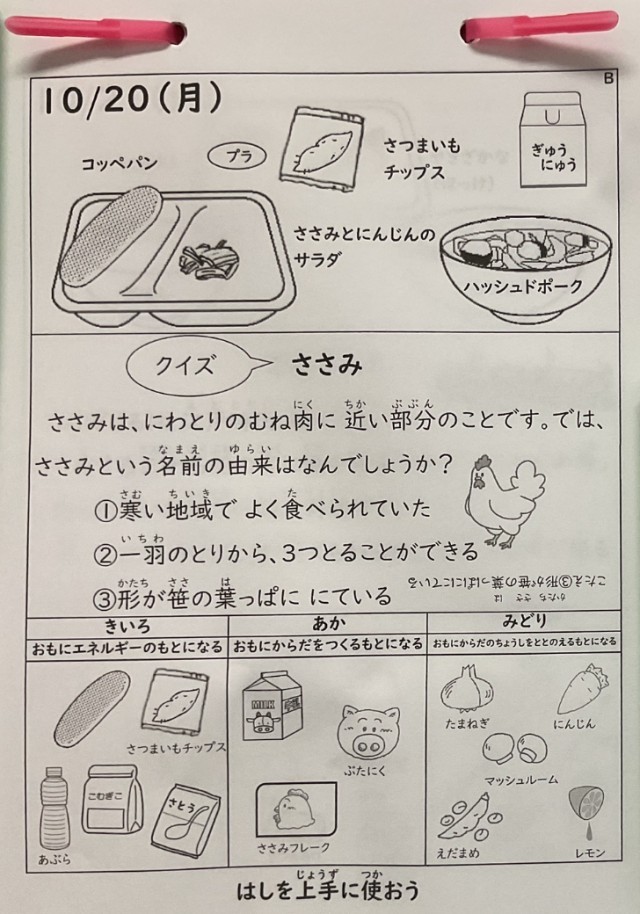 B
10/20(月)
コッペパン
プラ
さつまいも
チップス
ぎゅう
にゅう
ささみとにんじんの
サラダ
ハッシュドポーク
クイズ
ささみ
ささみは、にわとりのむね肉に近い部分のことです。では、
にく ちか ぶぶん
ささみという名前の由来はなんでしょうか？
なまえ ゆらい
①寒い地域で よく食べられていた
さむ ちいき た
②一羽のとりから、3つとることができる
いちわ
③形が笹の葉っぱに にている
かたち ささ は
こたえ③形が笹の葉っぱににている
かたち ささ は
きいろ
おもにエネルギーのもとになる
さつまいもチップス
こむぎこ
さとう
あぶら
あか
おもにからだをつくるもとになる
MILK
ぶたにく
ささみフレーク
みどり
おもにからだのちょうしをととのえるもとになる
たまねぎ
にんじん
マッシュルーム
えだまめ
レモン
はしを上手に使おう
じょうず つか